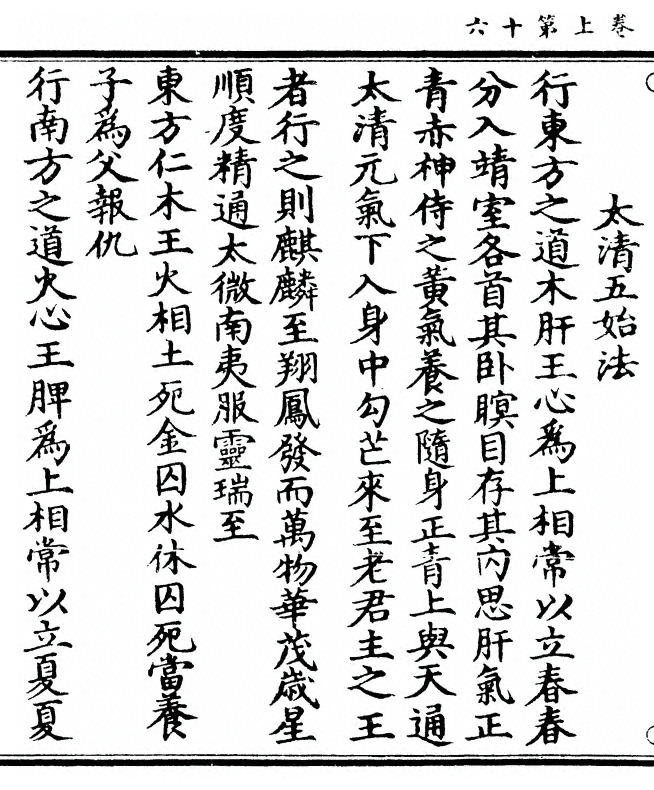 卷上第十六
太清五始法
行東方之道木肝王心爲上相常以立春春
分入靖室各首其卧瞑目存其内思肝氣正
青赤神侍之黄氣養之隨身正青上與天通
太清元氣下入身中勾芒來至老君主之王
者行之則麒麟至翔鳳發而萬物華茂歲星
順度精通太微南夷服靈瑞至
東方仁木王火相土死金囚水休囚死當養
子爲父報仇
行南方之道火心王脾爲上相常以立夏夏